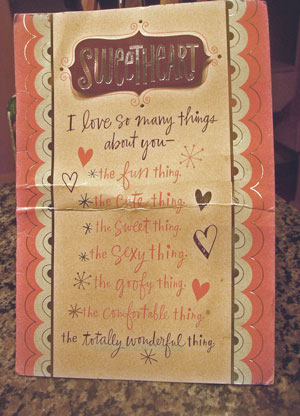 SWEETHEART
I love so many things
about you—
*the fun thing.
*the cute thing.
*the sweet thing.
*the sexy thing.
*the goofy thing.
*the comfortable thing.
the totally wonderful thing.